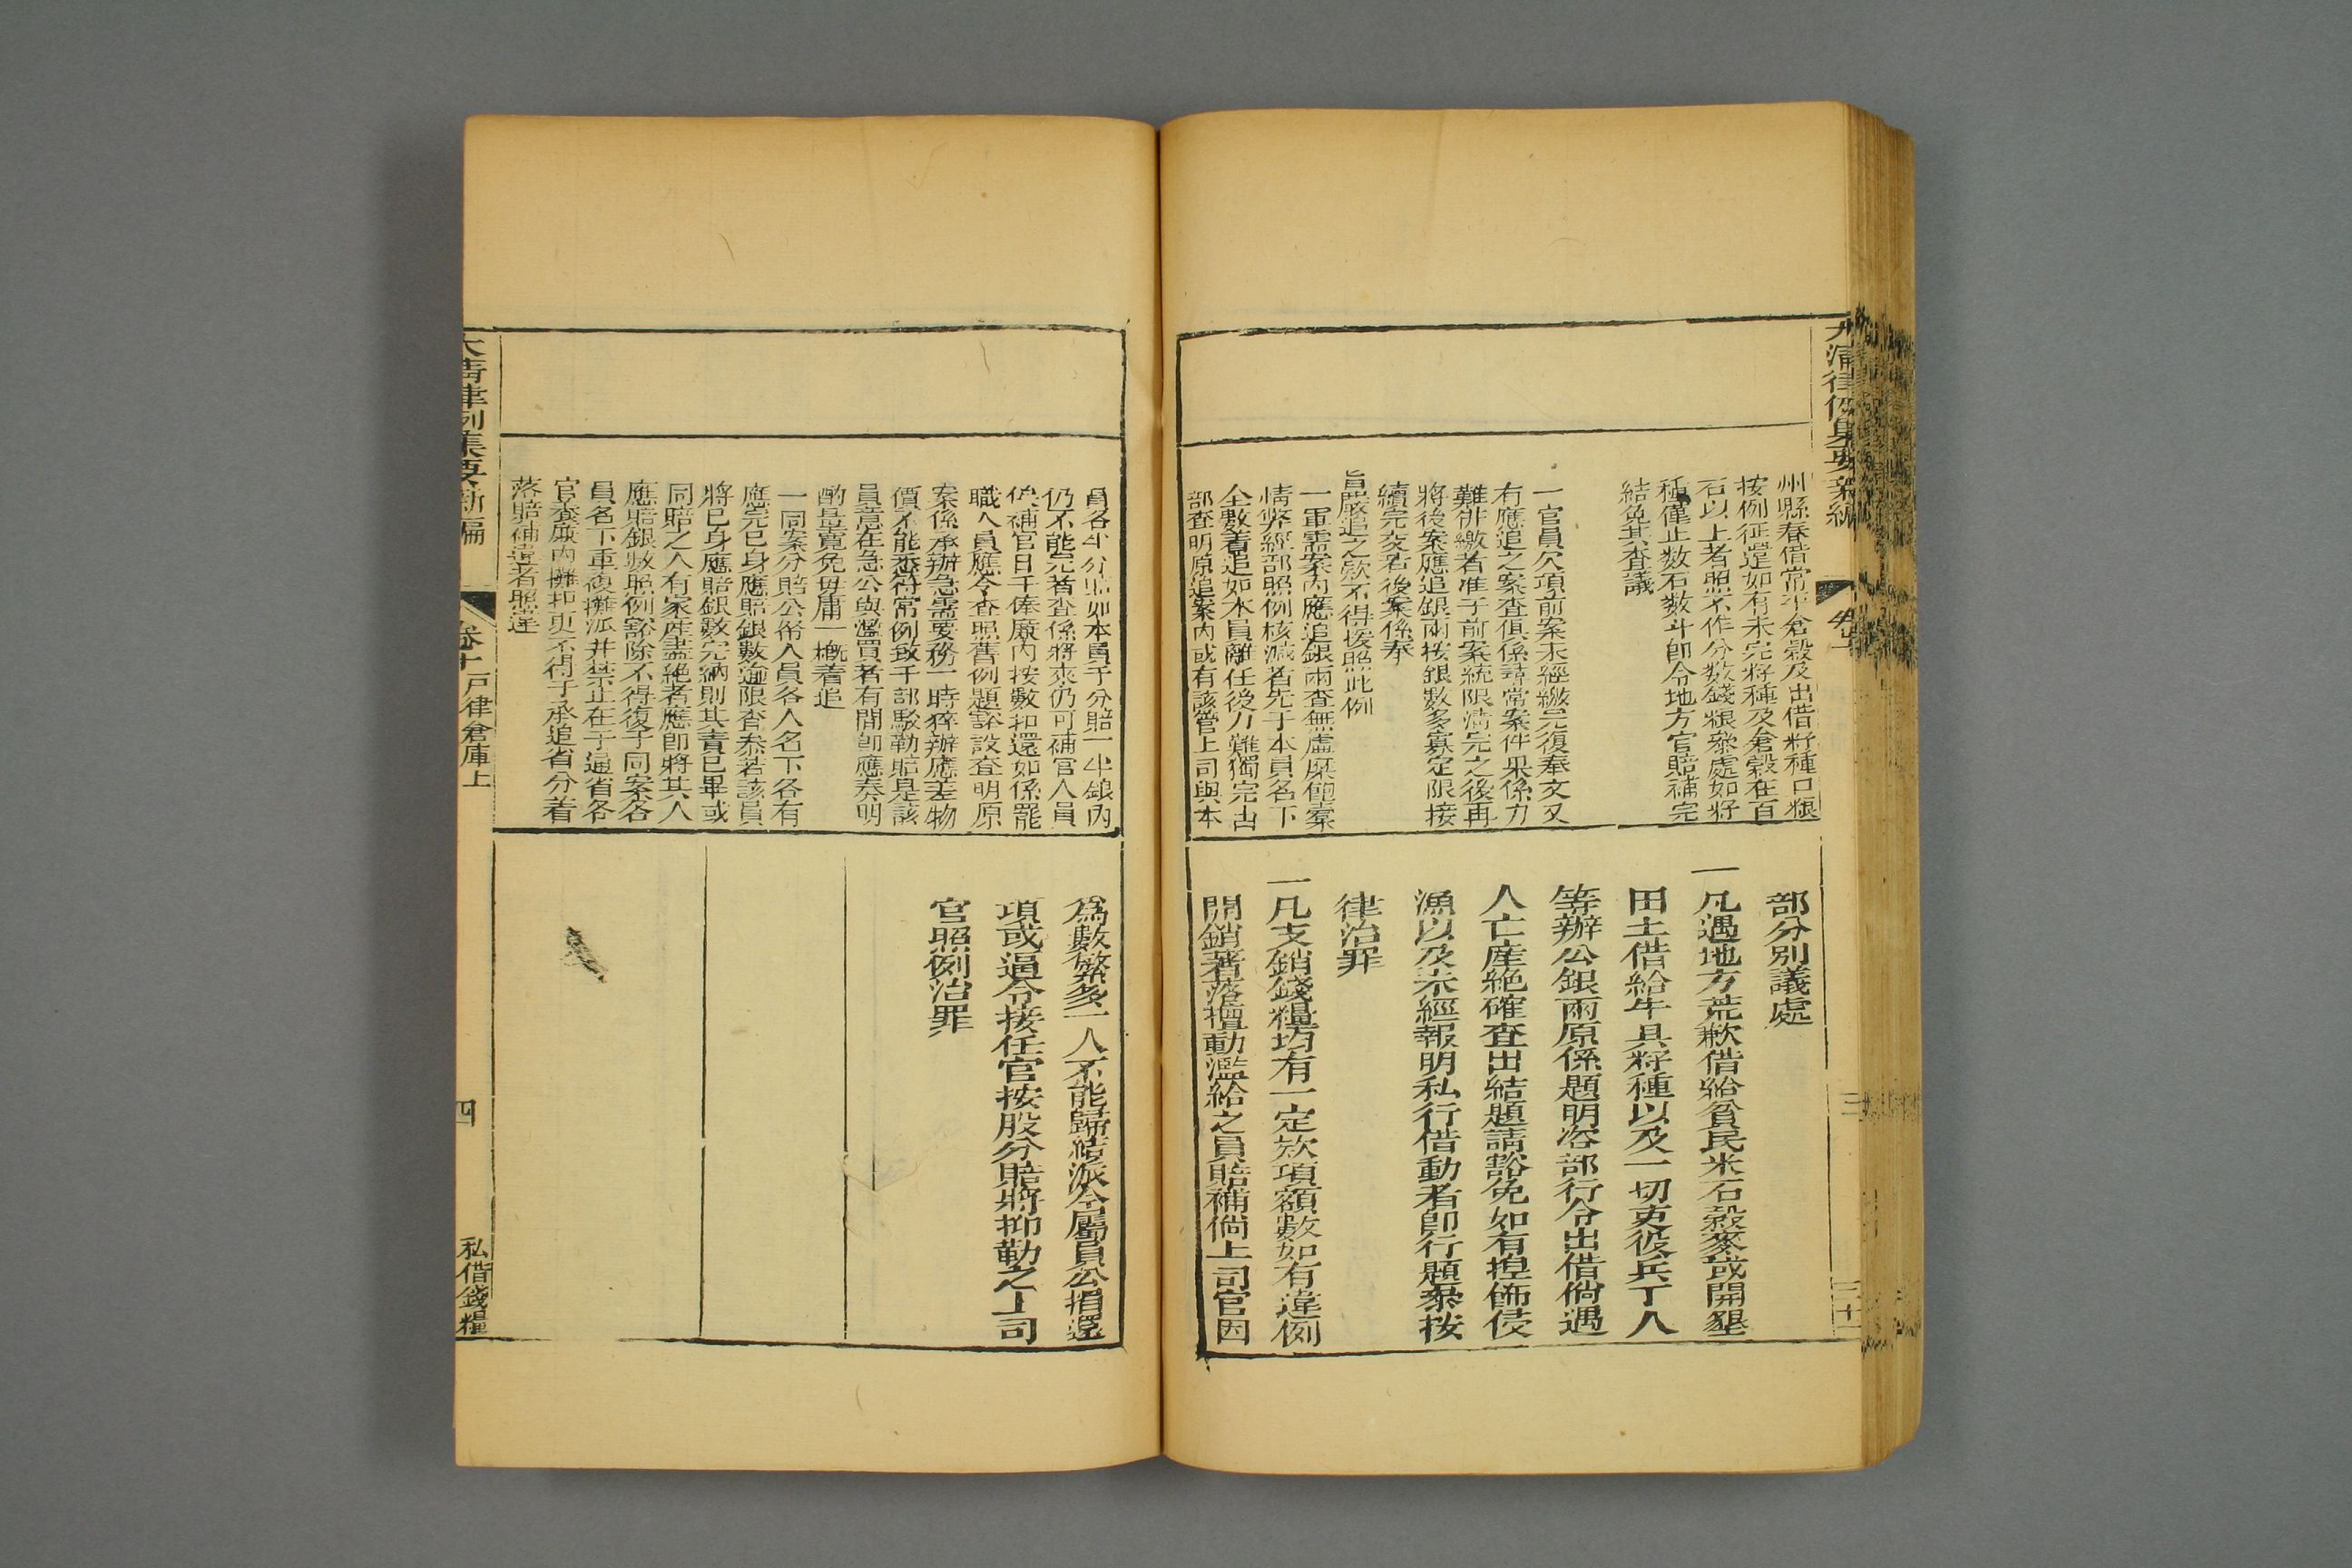 大清律例集要新編
州縣春借常平倉穀及出借籽種口糧
按例征還如有未完籽種及倉穀在百
石以上者照不作分數錢糧叅處如籽
種僅止數石數斗卽令地方官賠補完
結免其查議
一官員欠項前案未經繳完復奉文又
有應追之案查俱係尋常案件果係力
難併繳者准于前案統限淸完之後再
將後案應追銀兩按銀數多寡定限接
續完交若後案係奉
旨嚴追之欵不得援照此例
一軍需案內應追銀兩查無虛糜飽橐
情弊經部照例核減者先于本員名下
全數着追如本員離任後力難獨完古
部查明原追案內或有該管上司與本
部分別議處
一凡遇地方荒歉借給貧民米石穀麥或開墾
田土借給牛具籽種以及一切吏役兵丁人
等辦公銀兩原係題明咨部行令出借倘遇
人亡產絕確查出結題請豁免如有捏飾侵
漁以及未經報明私行借動者卽行題叅按
律治罪
一凡支銷錢糧均有一定欵項額數如有違例
開銷著落擅動濫給之員賠補倘上司官因
員各半分賠如本員于分賠一半銀內
仍不能完者查係將來仍可補官人員
俟補官日于俸廉內按數扣還如係罷
職人員應令查照舊例題豁設查明原
案係承辦急需要務一時猝辦應差物
價不能悉符常例致干部駁勒賠是該
員意在急公與濫買者有間卽應奏明
酌量寬免毋庸一概着追
一同案分賠公帑人員各人名下各有
應完已身應賠銀數逾限查叅若該員
將已身應賠銀數完納則其責已畢或
同賠之人有家產盡絕者應卽將其人
應賠銀數照例豁除不得復于同案各
員名下重複攤派并禁止在于通省各
官養廉內攤扣更不得于承追省分着
落賠補違者照違
爲數繁多一人不能歸結派令屬員公捐還
項或逼令接任官按股分賠將抑勒之上司
官照例治罪
大清律例集要新編
卷十
戶律倉庫上
四
私借錢糧